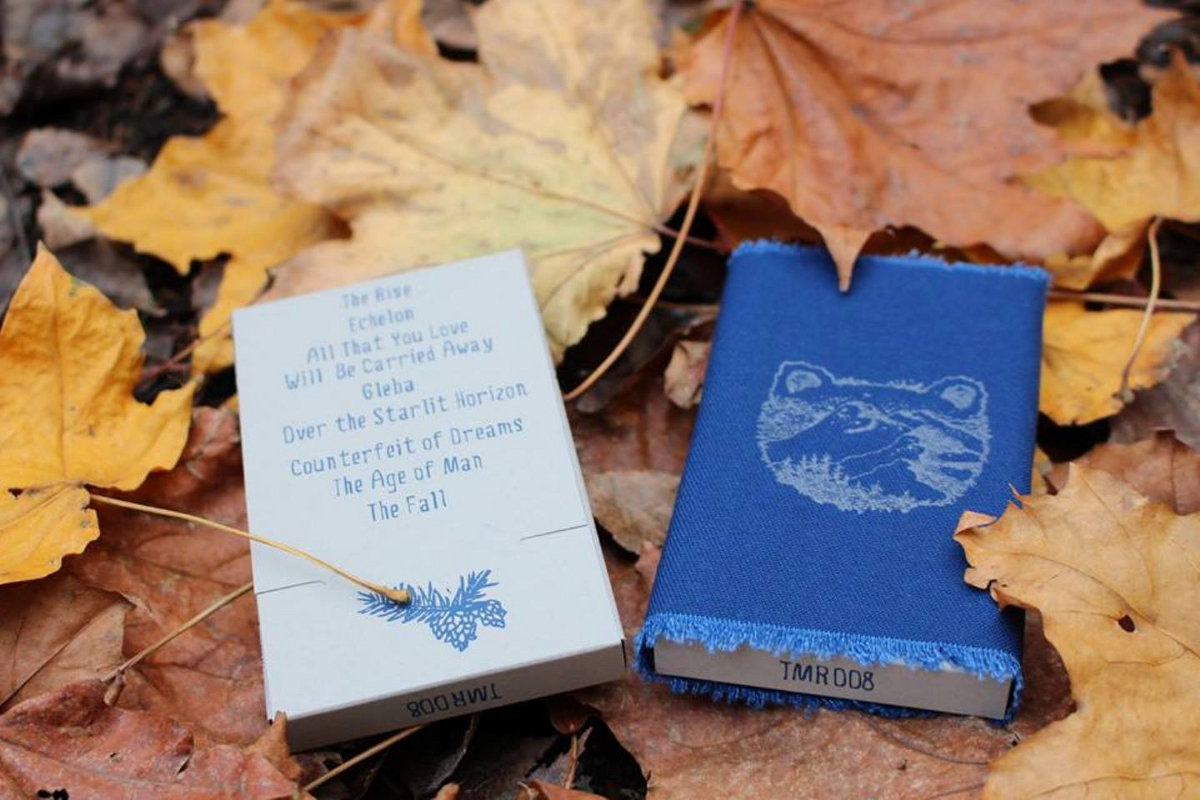 The Rise
Echelon
All That You Love
Will Be Carried Away
Gleba
Over the Starlit Horizon
Counterfeit of Dreams
The Age of Man
The Fall
TMR008
TMR008